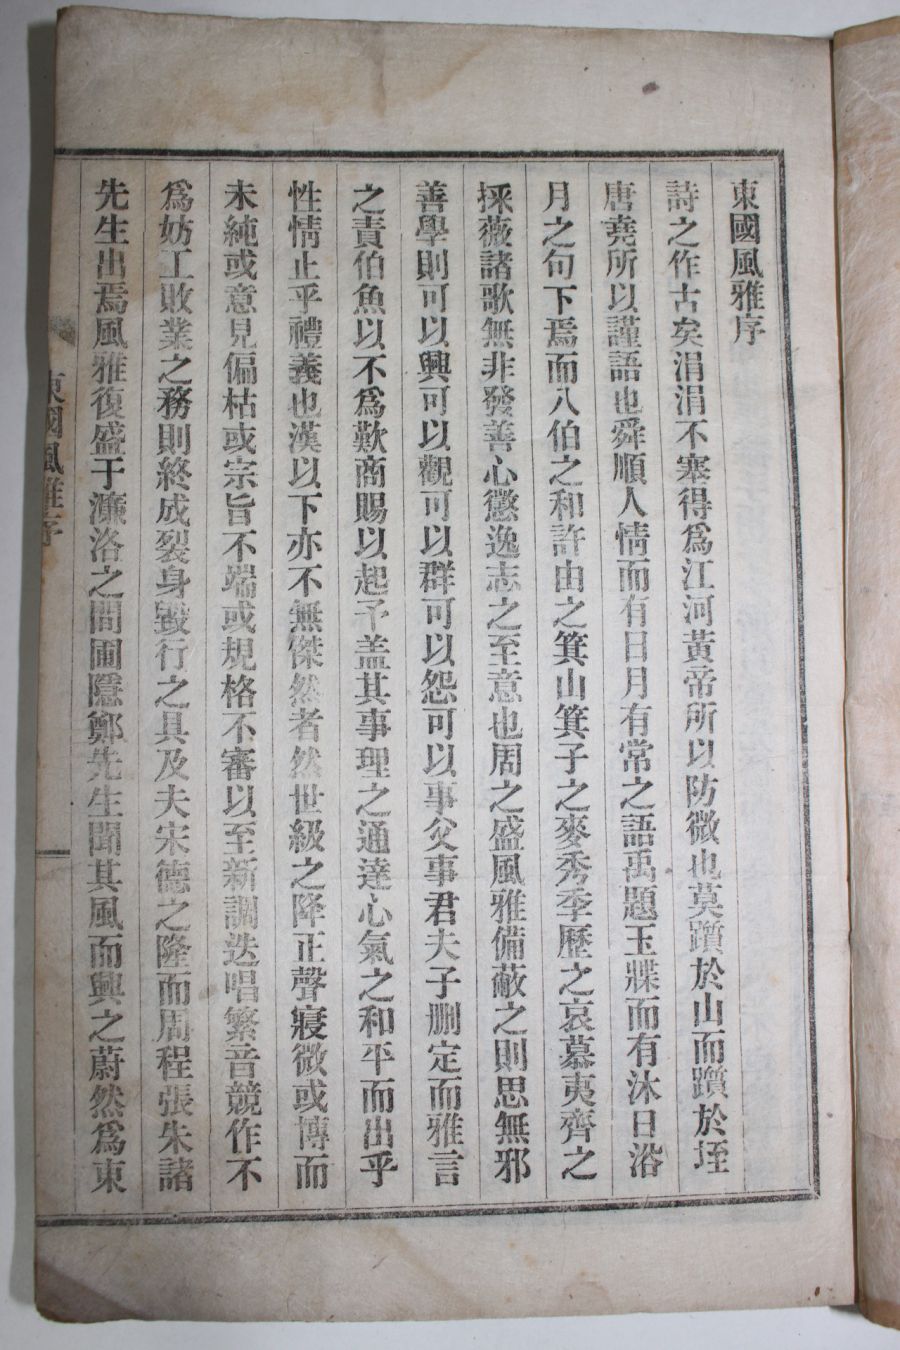 東國風雅序
詩之作古矣涓涓不塞得爲江河黃帝所以防微也莫躓於山而躓於垤
唐堯所以謹語也舜順人情而有日月有常之語禹題玉牒而有沐日浴
月之句下焉而八伯之和許由之箕山箕子之麥秀季歷之哀慕夷齊之
採薇諸歌無非發善心懲逸志之至意也周之盛風雅備蔽之則思無邪
善學則可以興可以觀可以群可以怨可以事父事君夫子刪定而雅言
之責伯魚以不爲歎商賜以起予盖其事理之通達心氣之和平而出乎
性情止乎禮義也漢以下亦不無傑然者然世級之降正聲寢微或博而
未純或意見偏枯或宗旨不端或規格不審以至新調迭唱繁音競作不
爲妨工敗業之務則終成裂身毀行之具及夫宋德之隆而周程張朱諸
先生出焉風雅復盛于濂洛之間圃隱鄭先生聞其風而興之蔚然爲東
東國風雅序